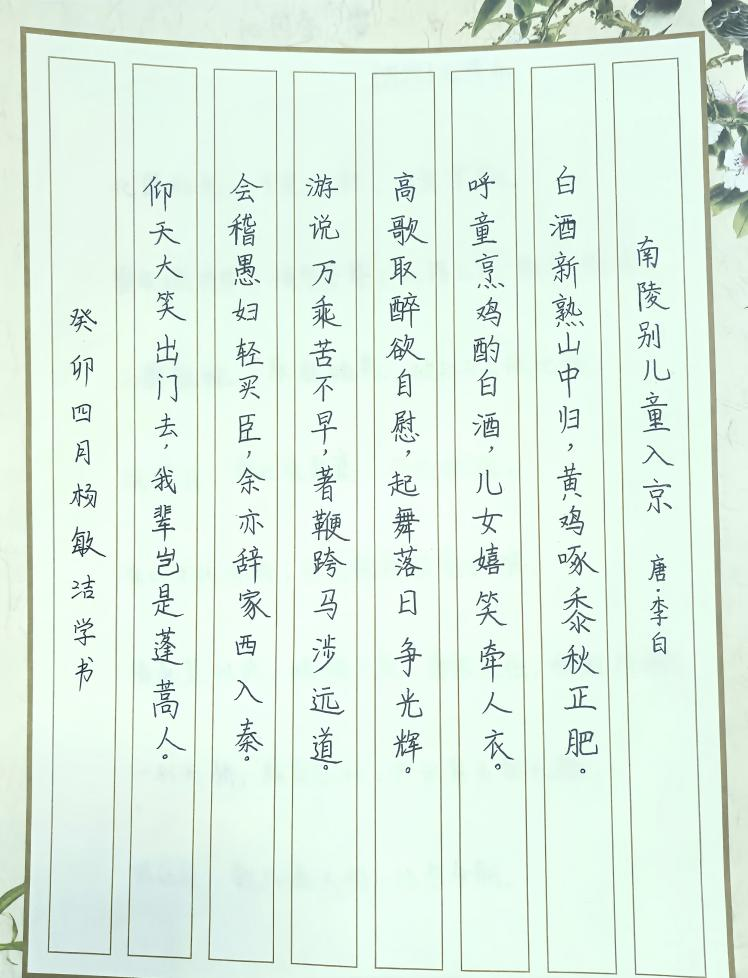 南陵别儿童入京 唐·李白
白酒新熟山中归,黄鸡啄黍秋正肥。
呼童烹鸡酌白酒,儿女嬉笑牵人衣。
高歌取醉欲自慰,起舞落日争光辉。
游说万乘苦不早,著鞭跨马涉远道。
会稽愚妇轻买臣,余亦辞家西入秦。
仰天大笑出门去,我辈岂是蓬蒿人。
癸卯四月杨敏洁学书